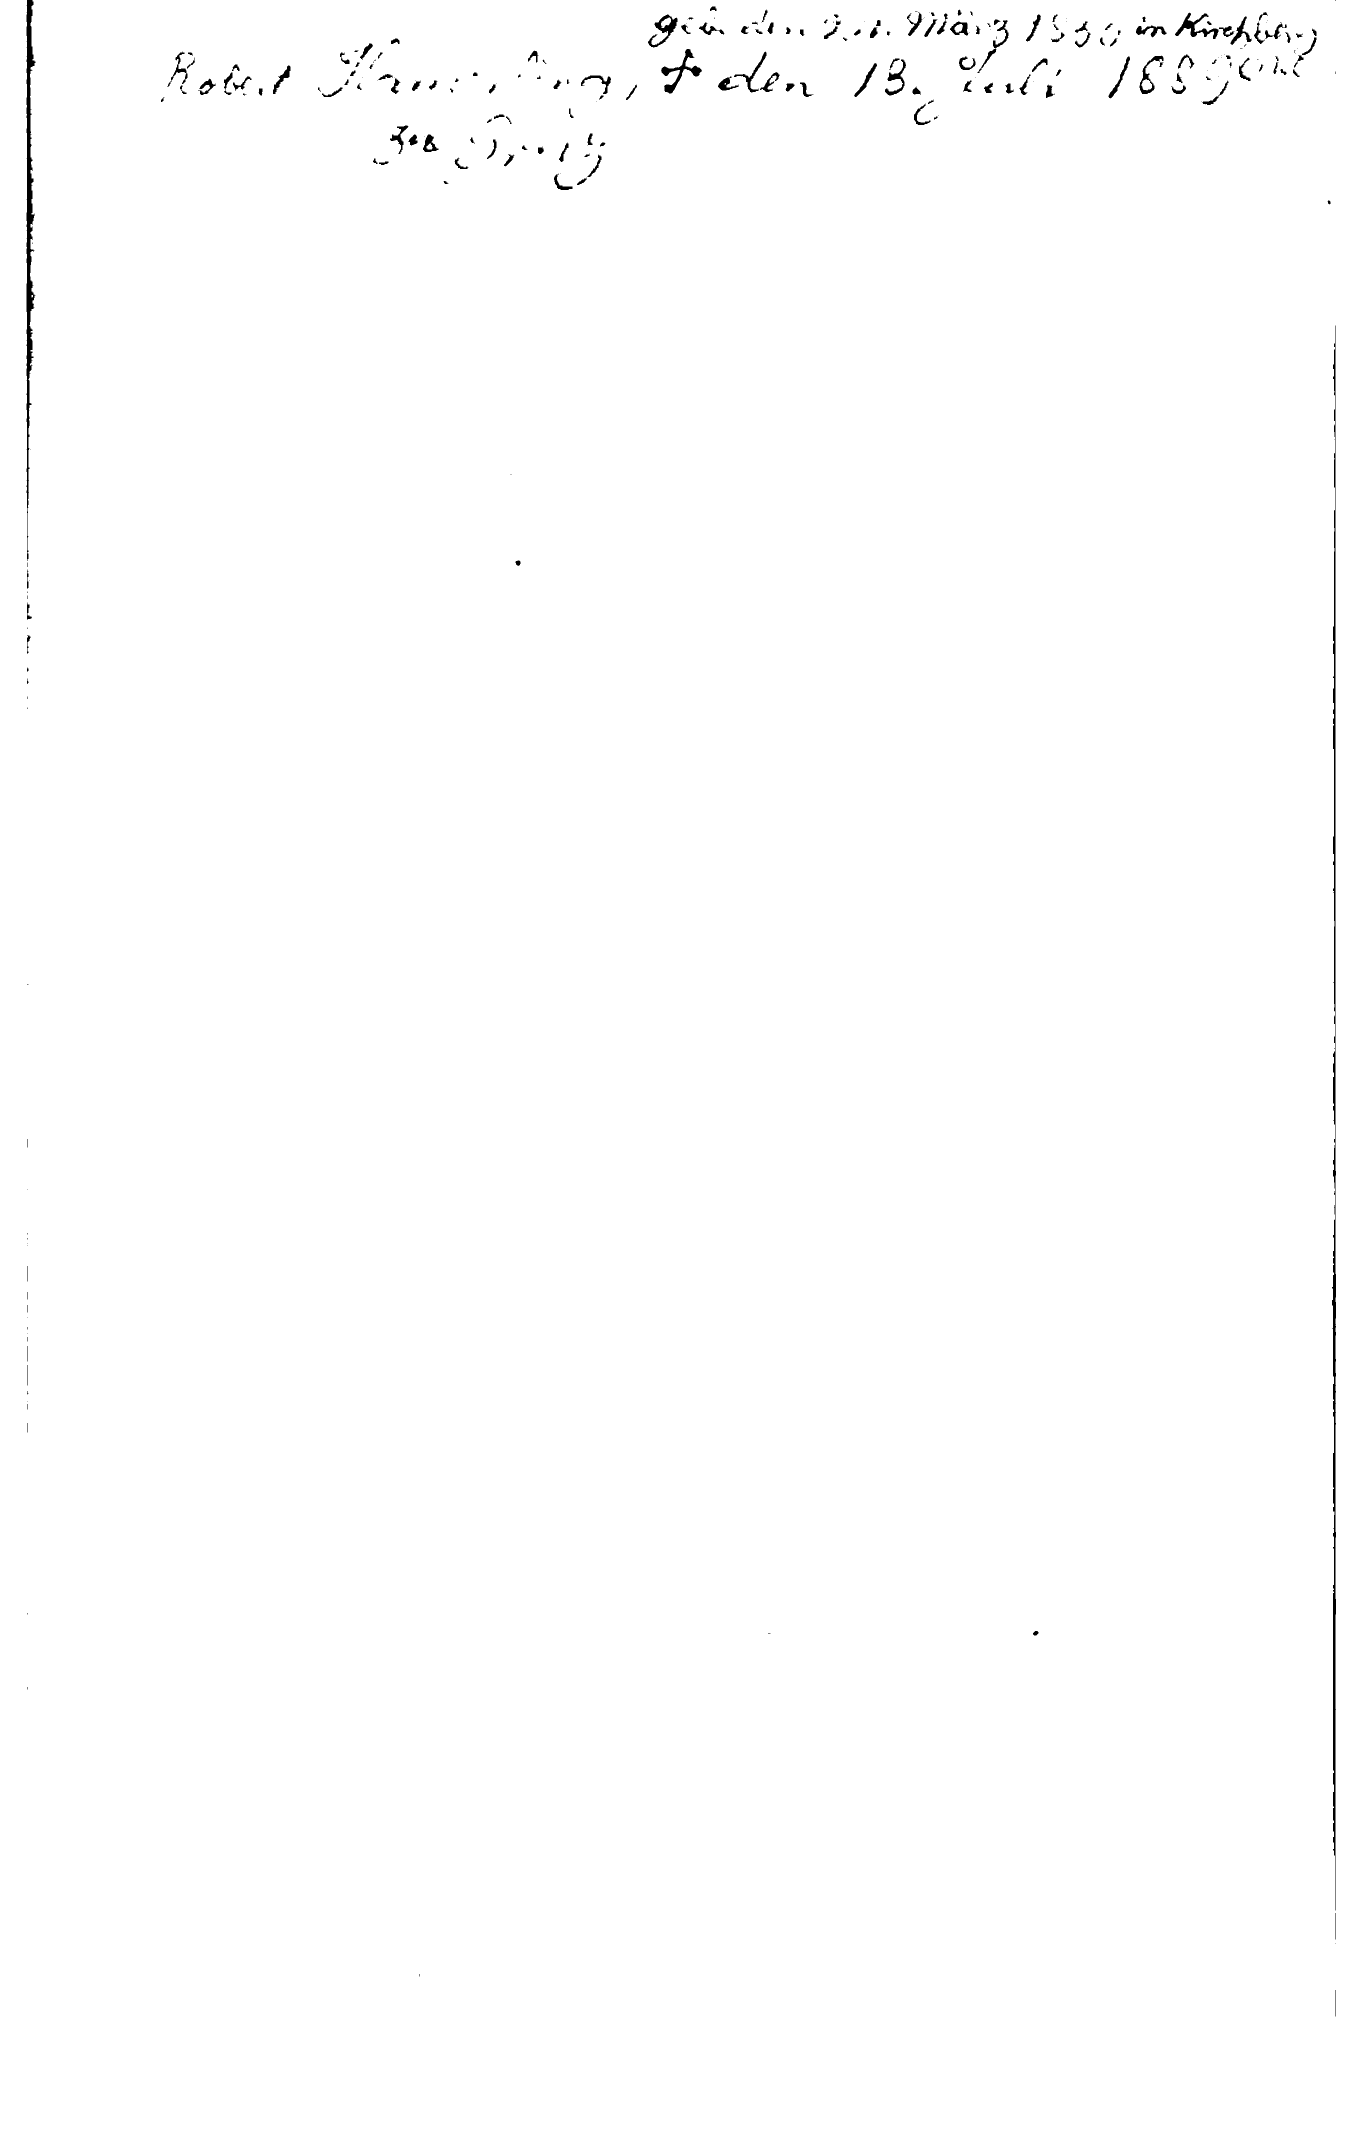 geb. den 24. März 1830 in Kirchberg
Robert Hamerling, † den 13. Juli 1889
zu Graz